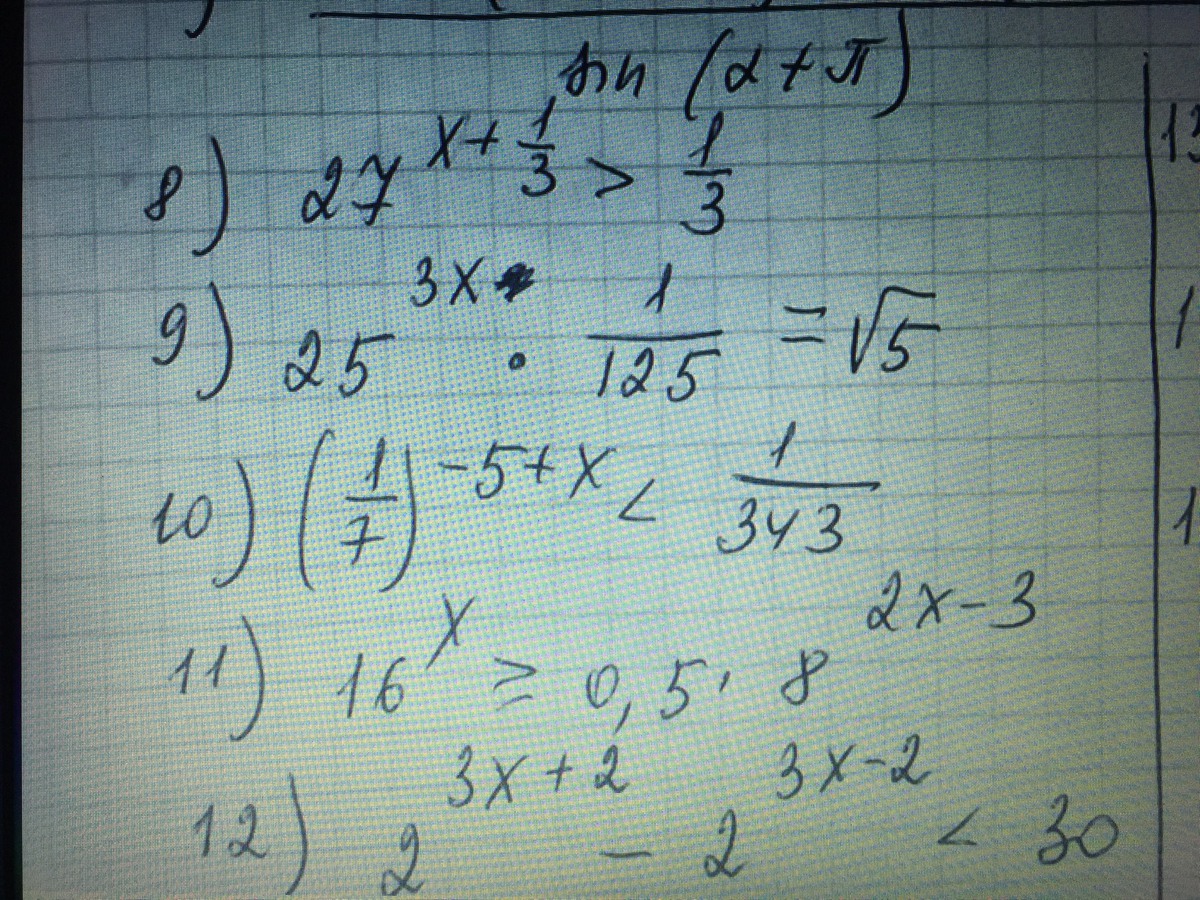 sin (α + π)
8) 27^(x + 1/3) > 1/3
9) 25^(3x) · 1/125 = √5
10) (1/7)^(-5 + x) < 1/343
11) 16^x ≥ 0,5 · 8^(2x - 3)
12) 2^(3x + 2) - 2^(3x - 2) < 30